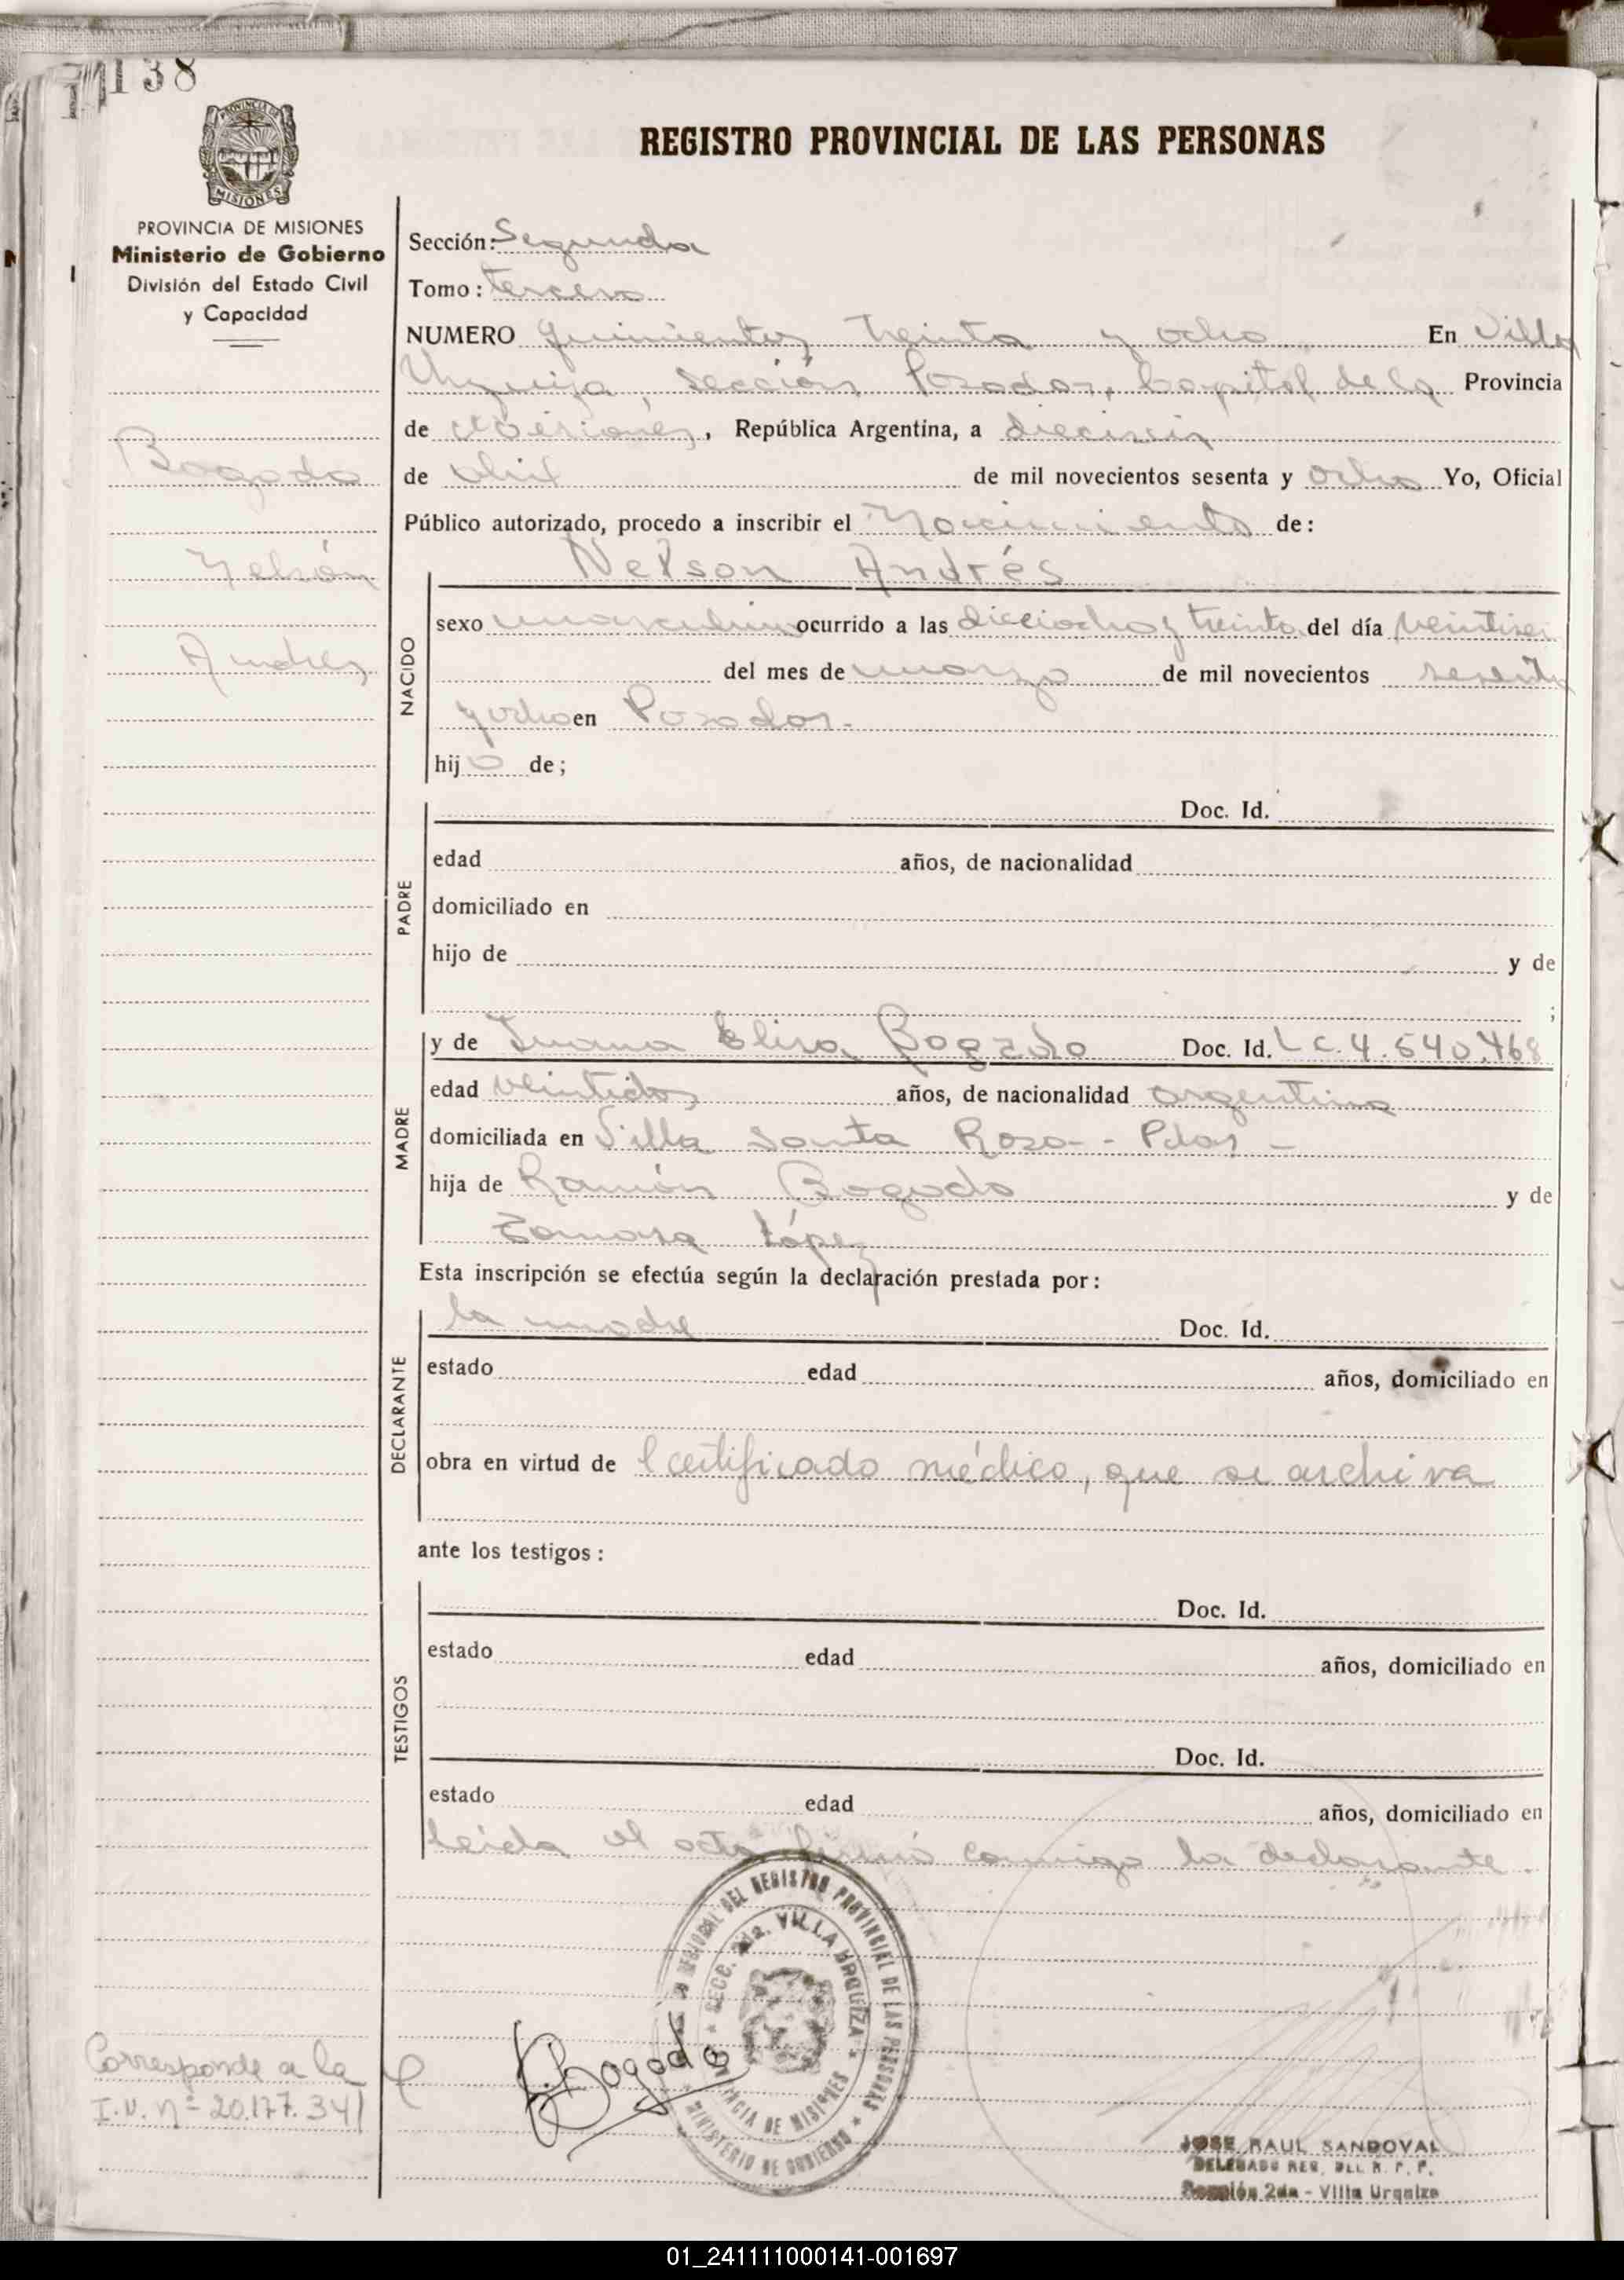 138
PROVINCIA DE
MISIONES
PROVINCIA DE MISIONES
Ministerio de Gobierno
División del Estado Civil
y Capacidad
REGISTRO PROVINCIAL DE LAS PERSONAS
Sección: Segunda
Tomo: tercero
NUMERO quinientos treinta y ocho En Villa
Urquiza, sección Posadas, Capital de la Provincia
de Misiones, República Argentina, a dieciseis
de abril de mil novecientos sesenta y ocho Yo, Oficial
Público autorizado, procedo a inscribir el Nacimiento de:
Bogado
Nelson
Andrés
NACIDO
Nelson Andrés
sexo masculino ocurrido a las dieciocho y treinta del día veintiseis
del mes de marzo de mil novecientos sesenta
y ocho en Posadas.-
hijo de;
PADRE
Doc. Id.
edad años, de nacionalidad
domiciliado en
hijo de y de
;
MADRE
y de Juana Elisa Bogado Doc. Id. L C. 4.640.468
edad veintidos años, de nacionalidad argentina
domiciliada en Villa Santa Rosa - - Pdas -
hija de Ramón Bogado y de
López
Esta inscripción se efectúa según la declaración prestada por:
DECLARANTE
la madre Doc. Id.
estado edad años, domiciliado en
obra en virtud de l certificado médico, que se archiva
ante los testigos:
TESTIGOS
Doc. Id.
estado edad años, domiciliado en
Doc. Id.
estado edad años, domiciliado en
Leida el acta firmó conmigo la declarante.
REGIONAL DEL REGISTRO PROVINCIAL DE LAS PERSONAS
SECC. 2da. VILLA URQUIZA
PROVINCIA DE MISIONES
MINISTERIO DE GOBIERNO
Bogado
Corresponde a la
I.N. nº 20.177.341
JOSE RAUL SANDOVAL
DELEGADO REG. DEL R. P. P.
Sección 2da - Villa Urquiza
01_241111000141-001697